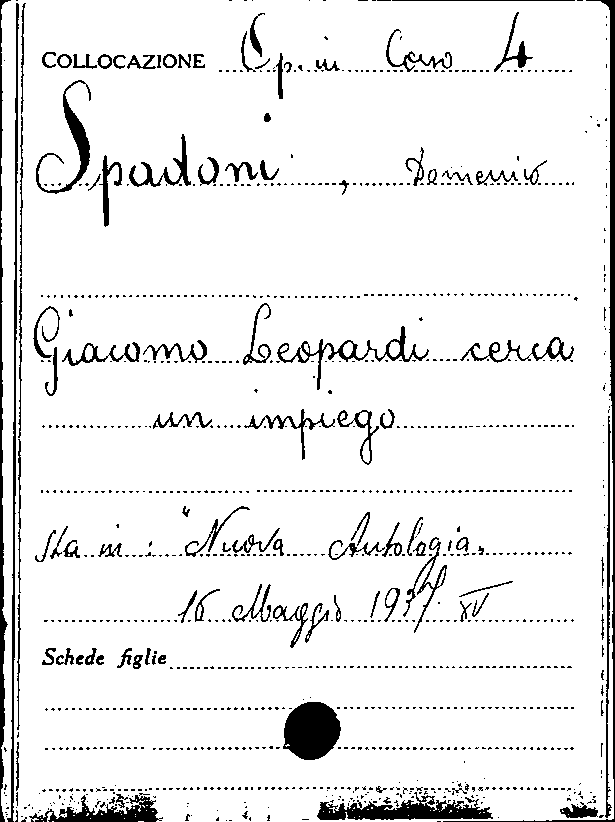 COLLOCAZIONE Op. in Corso 4
Spadoni, Domenico
Giacomo Leopardi cerca
un impiego
Sta in: "Nuova Antologia"
16 Maggio 1937. XV
Schede figlie